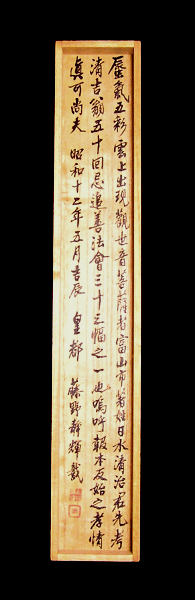 蜃氣五彩雲上出現觀世音菩薩者富山市著姓日水清治君先考
清吉翁五十回忌追善法會三十三幅之一也嗚呼報本反始之孝情
眞可尚夫 昭和十二年五月吉辰 皇都 藤野靜輝識